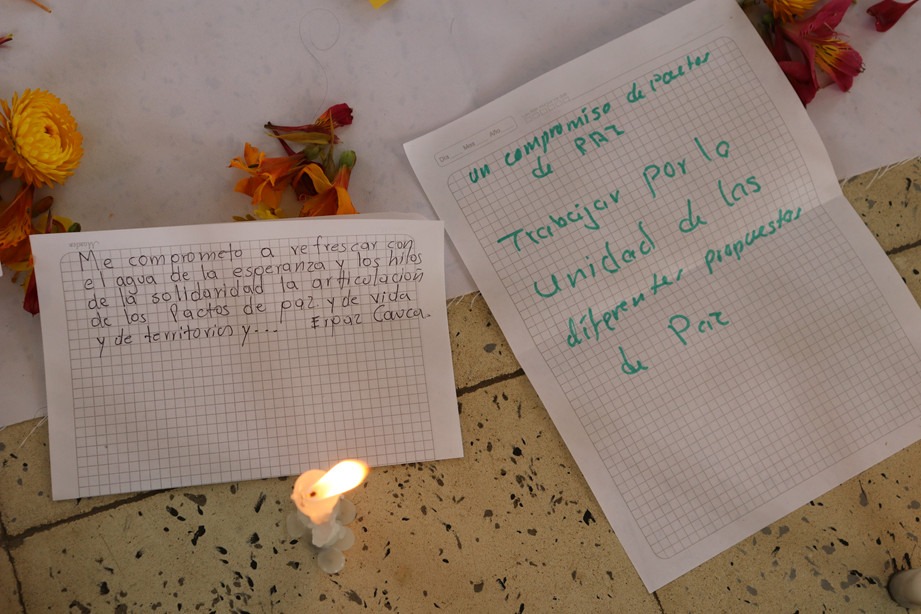 Me comprometo a refrescar con
el agua de la esperanza y los hilos
de la solidaridad la articulación
de los Pactos de paz y de vida
y de territorios y... Erpaz Cauca.
Día Mes Año
un compromiso de pactos
de PAZ
Trabajar por lo
unidad de las
diferentes propuestas
de Paz